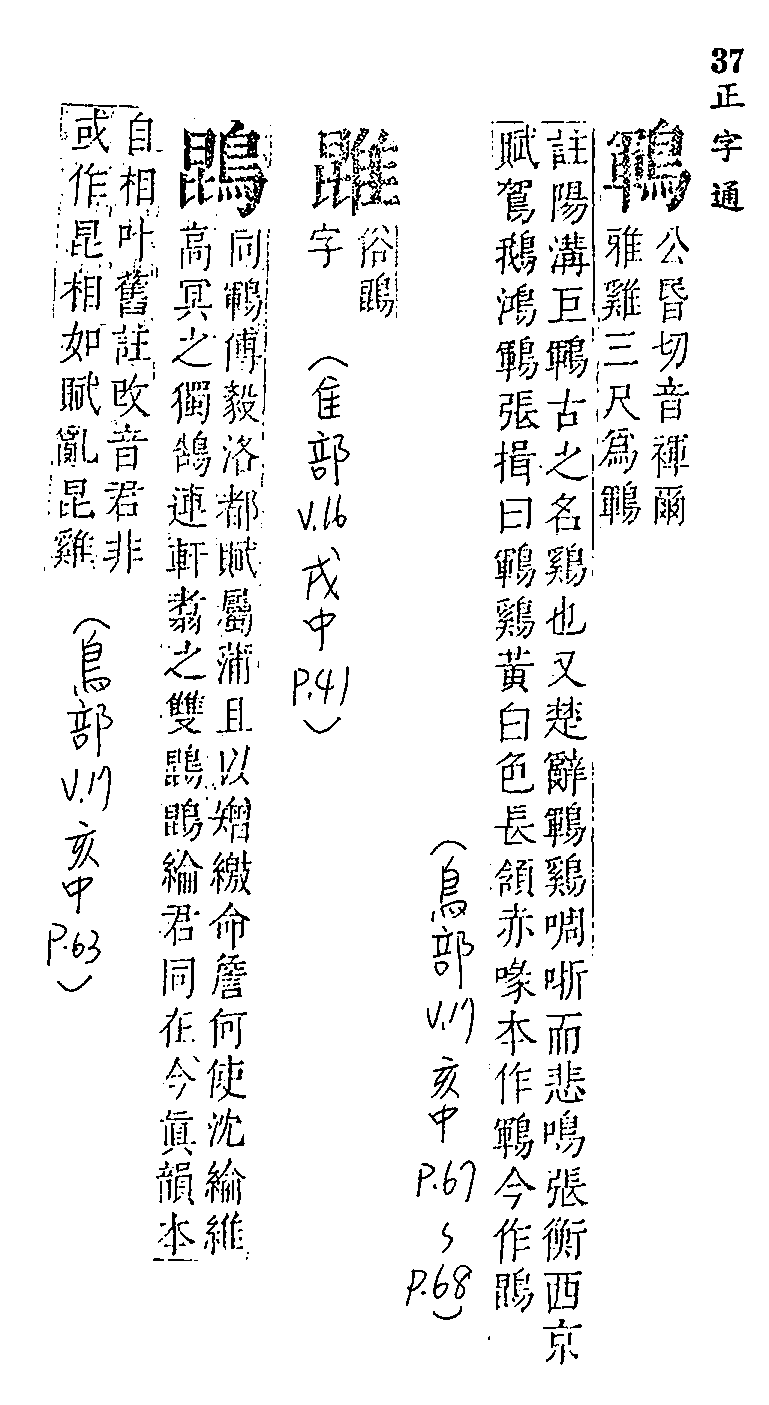 37 正字通
鶤 公昏切音褌爾
雅雞三尺爲鶤
註陽溝巨鶤古之名鷄也又楚辭鶤鷄啁哳而悲鳴張衡西京
賦駕鵝鴻鶤張揖曰鶤鷄黃白色長頷赤喙本作鶤今作鵾
(鳥部 V.17 亥中 P.67~P.68)
䧲 俗鵾
字
(隹部 V.16 戌中 P.41)
鵾 同鶤傅毅洛都賦屬蒲且以矰繳命詹何使沈綸維
高冥之獨鵠連軒翥之雙鵾鵾綸君同在今眞韻本
自相叶舊註改音君非
或作昆相如賦亂昆雞
(鳥部 V.17 亥中 P.63)